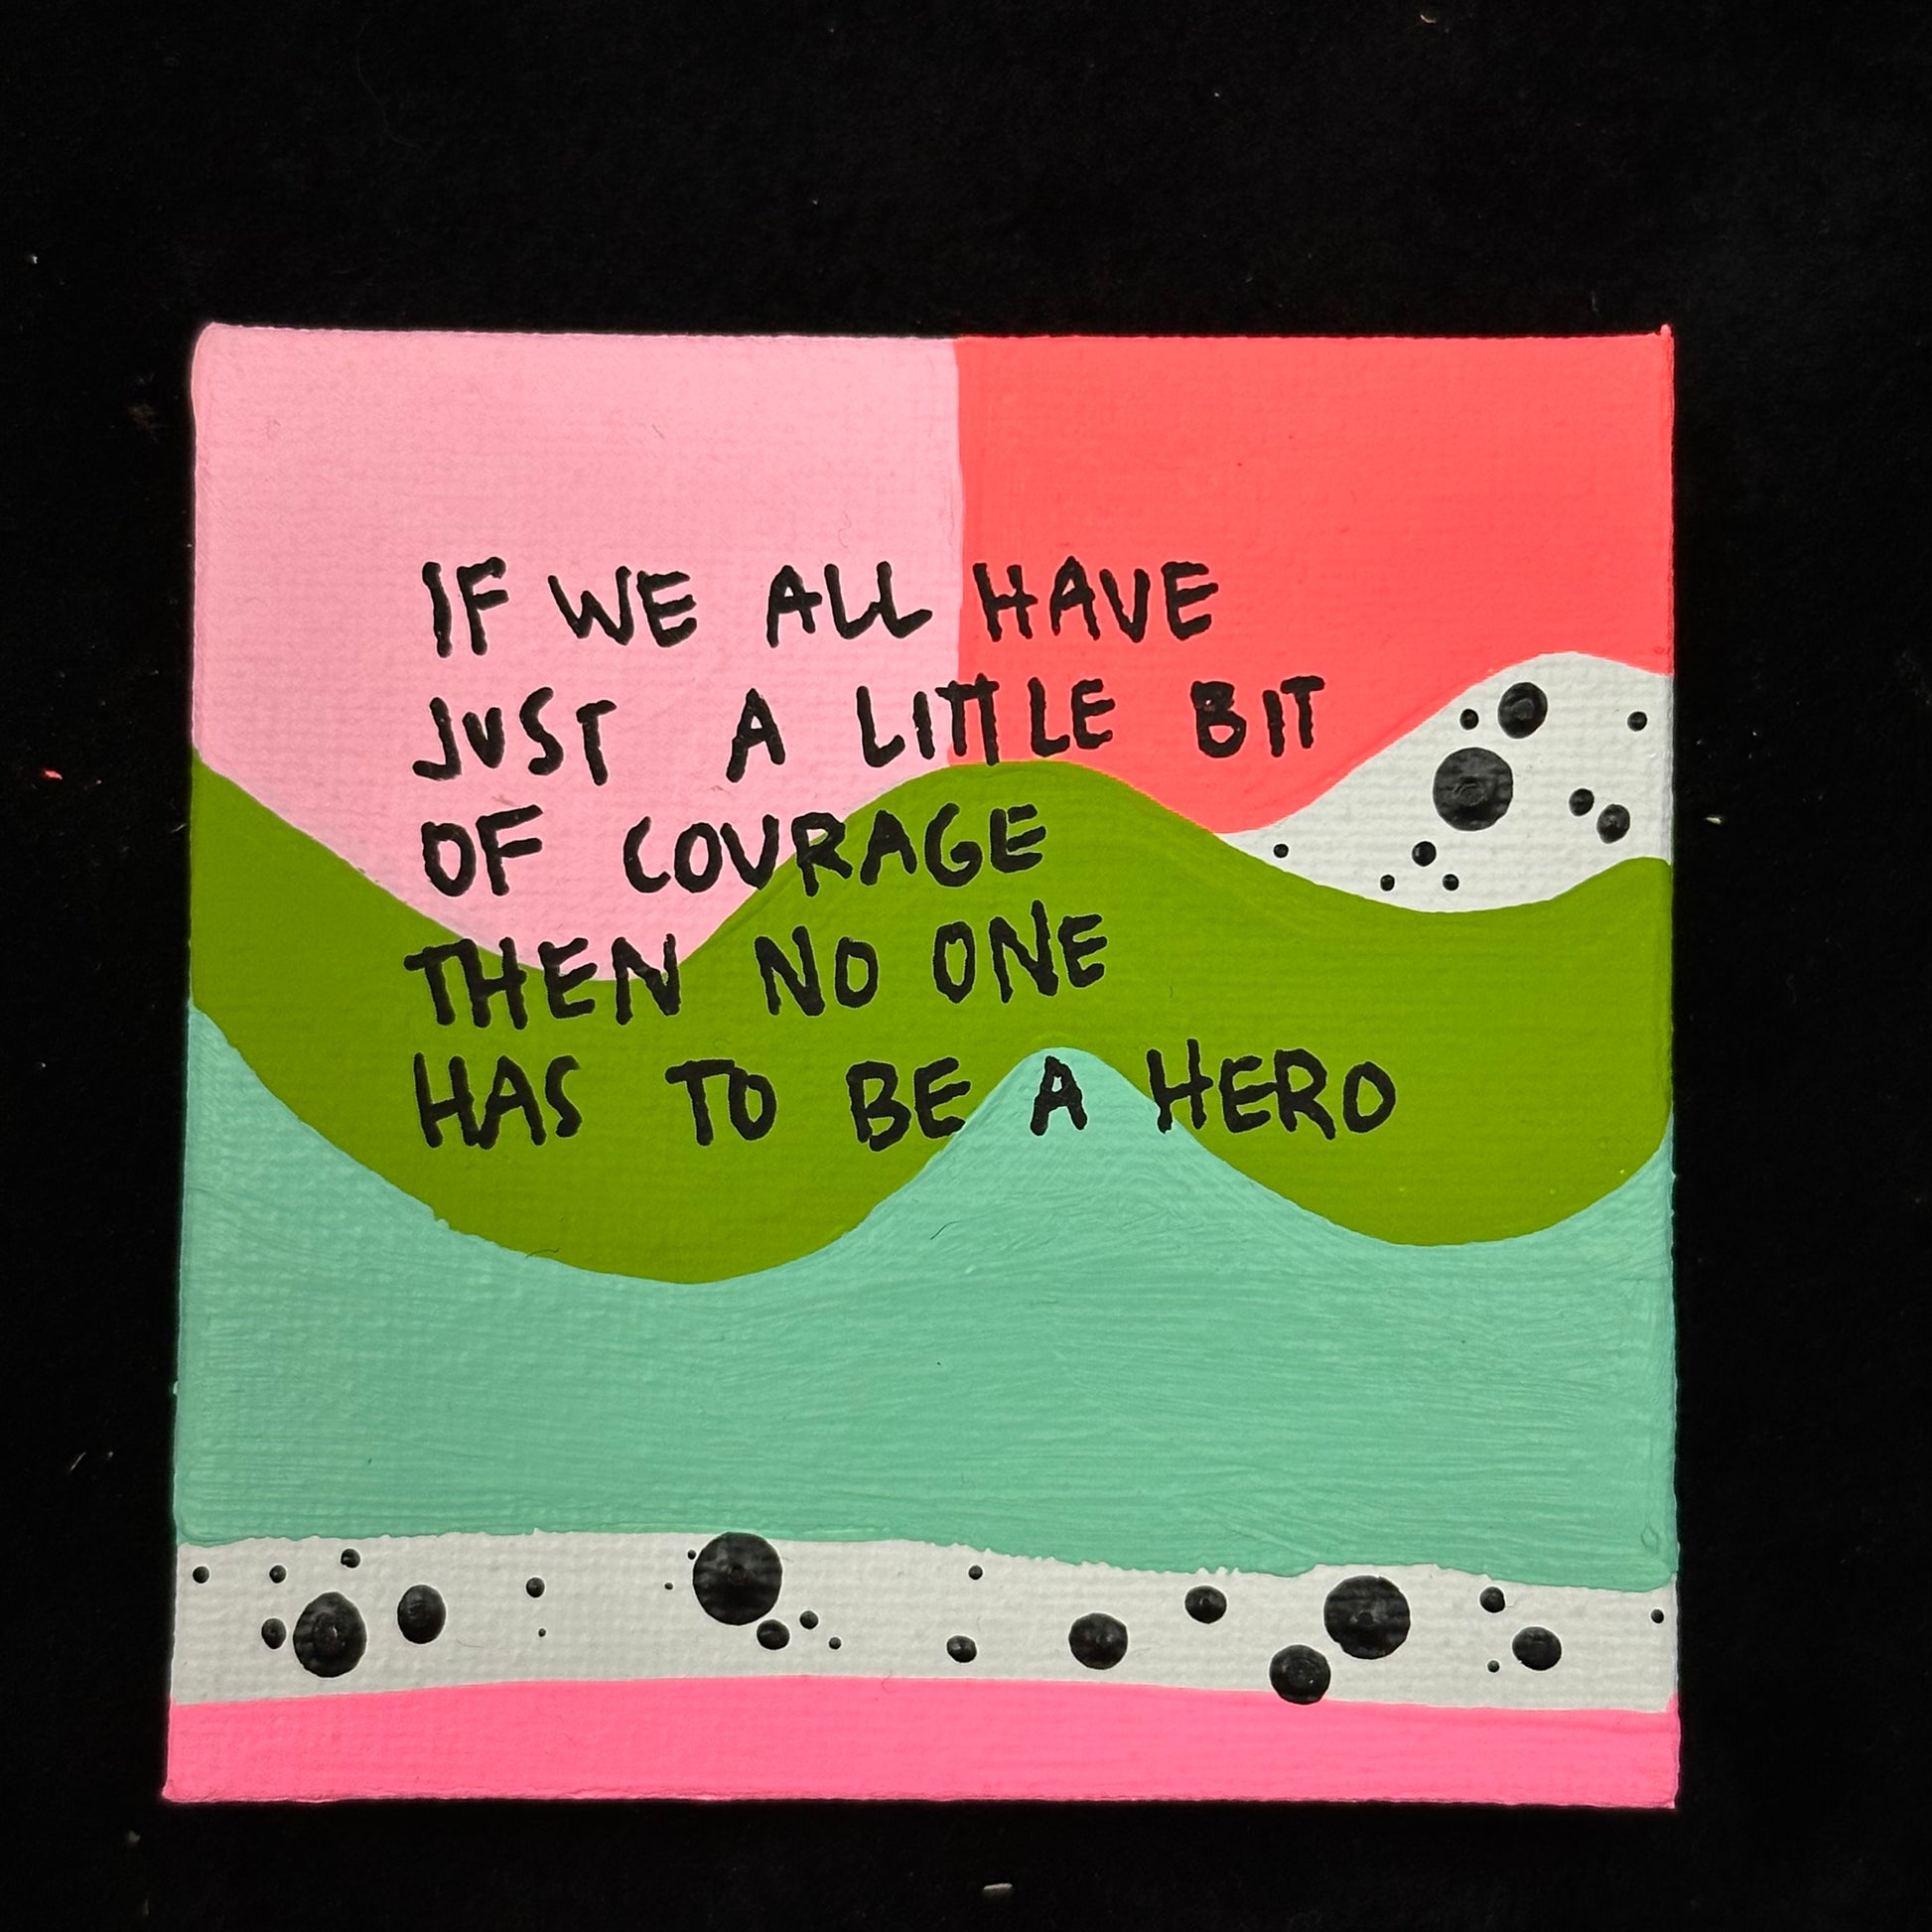 IF WE ALL HAVE
JUST A LITTLE BIT
OF COURAGE
THEN NO ONE
HAS TO BE A HERO